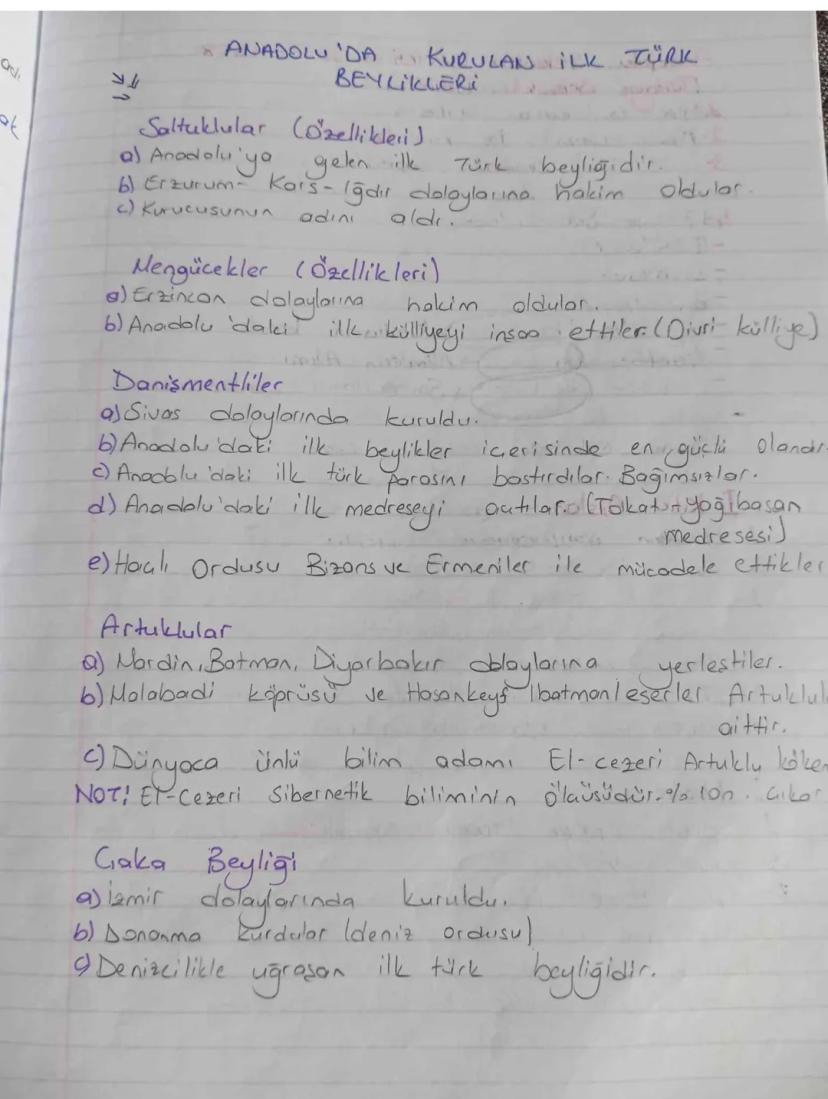 ANADOLU'DA KURULAN İLK TÜRK
BEYLİKLERİ
Saltuklular (Özellikleri)
a) Anadolu'ya gelen ilk Türk beyliğidir.
b) Erzurum - Kars - Iğdır dolaylarına hakim oldular.
c) Kurucusunun adını aldı.
Mengücekler (Özellikleri)
a) Erzincan dolaylarına hakim oldular.
b) Anadolu'daki ilk külliyeyi insaa ettiler. (Divri külliye)
Danişmentliler
a) Sivas dolaylarında kuruldu.
b) Anadolu'daki ilk beylikler içerisinde en güçlü olandır.
c) Anadolu'daki ilk türk parasını bastırdılar. Bağımsızlar.
d) Anadolu'daki ilk medreseyi açtılar. (Tokat → Yağıbasan
medresesi)
e) Haçlı Ordusu Bizans ve Ermeniler ile mücadele ettikler
Artuklular
a) Mardin, Batman, Diyarbakır dolaylarına yerleştiler.
b) Malabadi köprüsü ve Hasankeyf (batman) eserler Artuklul
aittir.
c) Dünyaca ünlü bilim adamı El-cezeri Artuklu köken
NOT! El-Cezeri Sibernetik biliminin ölçüsüdür. % 100 çıkar
Çaka Beyliği
a) izmir dolaylarında kuruldu.
b) Donanma kurdular (deniz ordusu)
c) Denizcilikle uğraşan ilk türk beyliğidir.